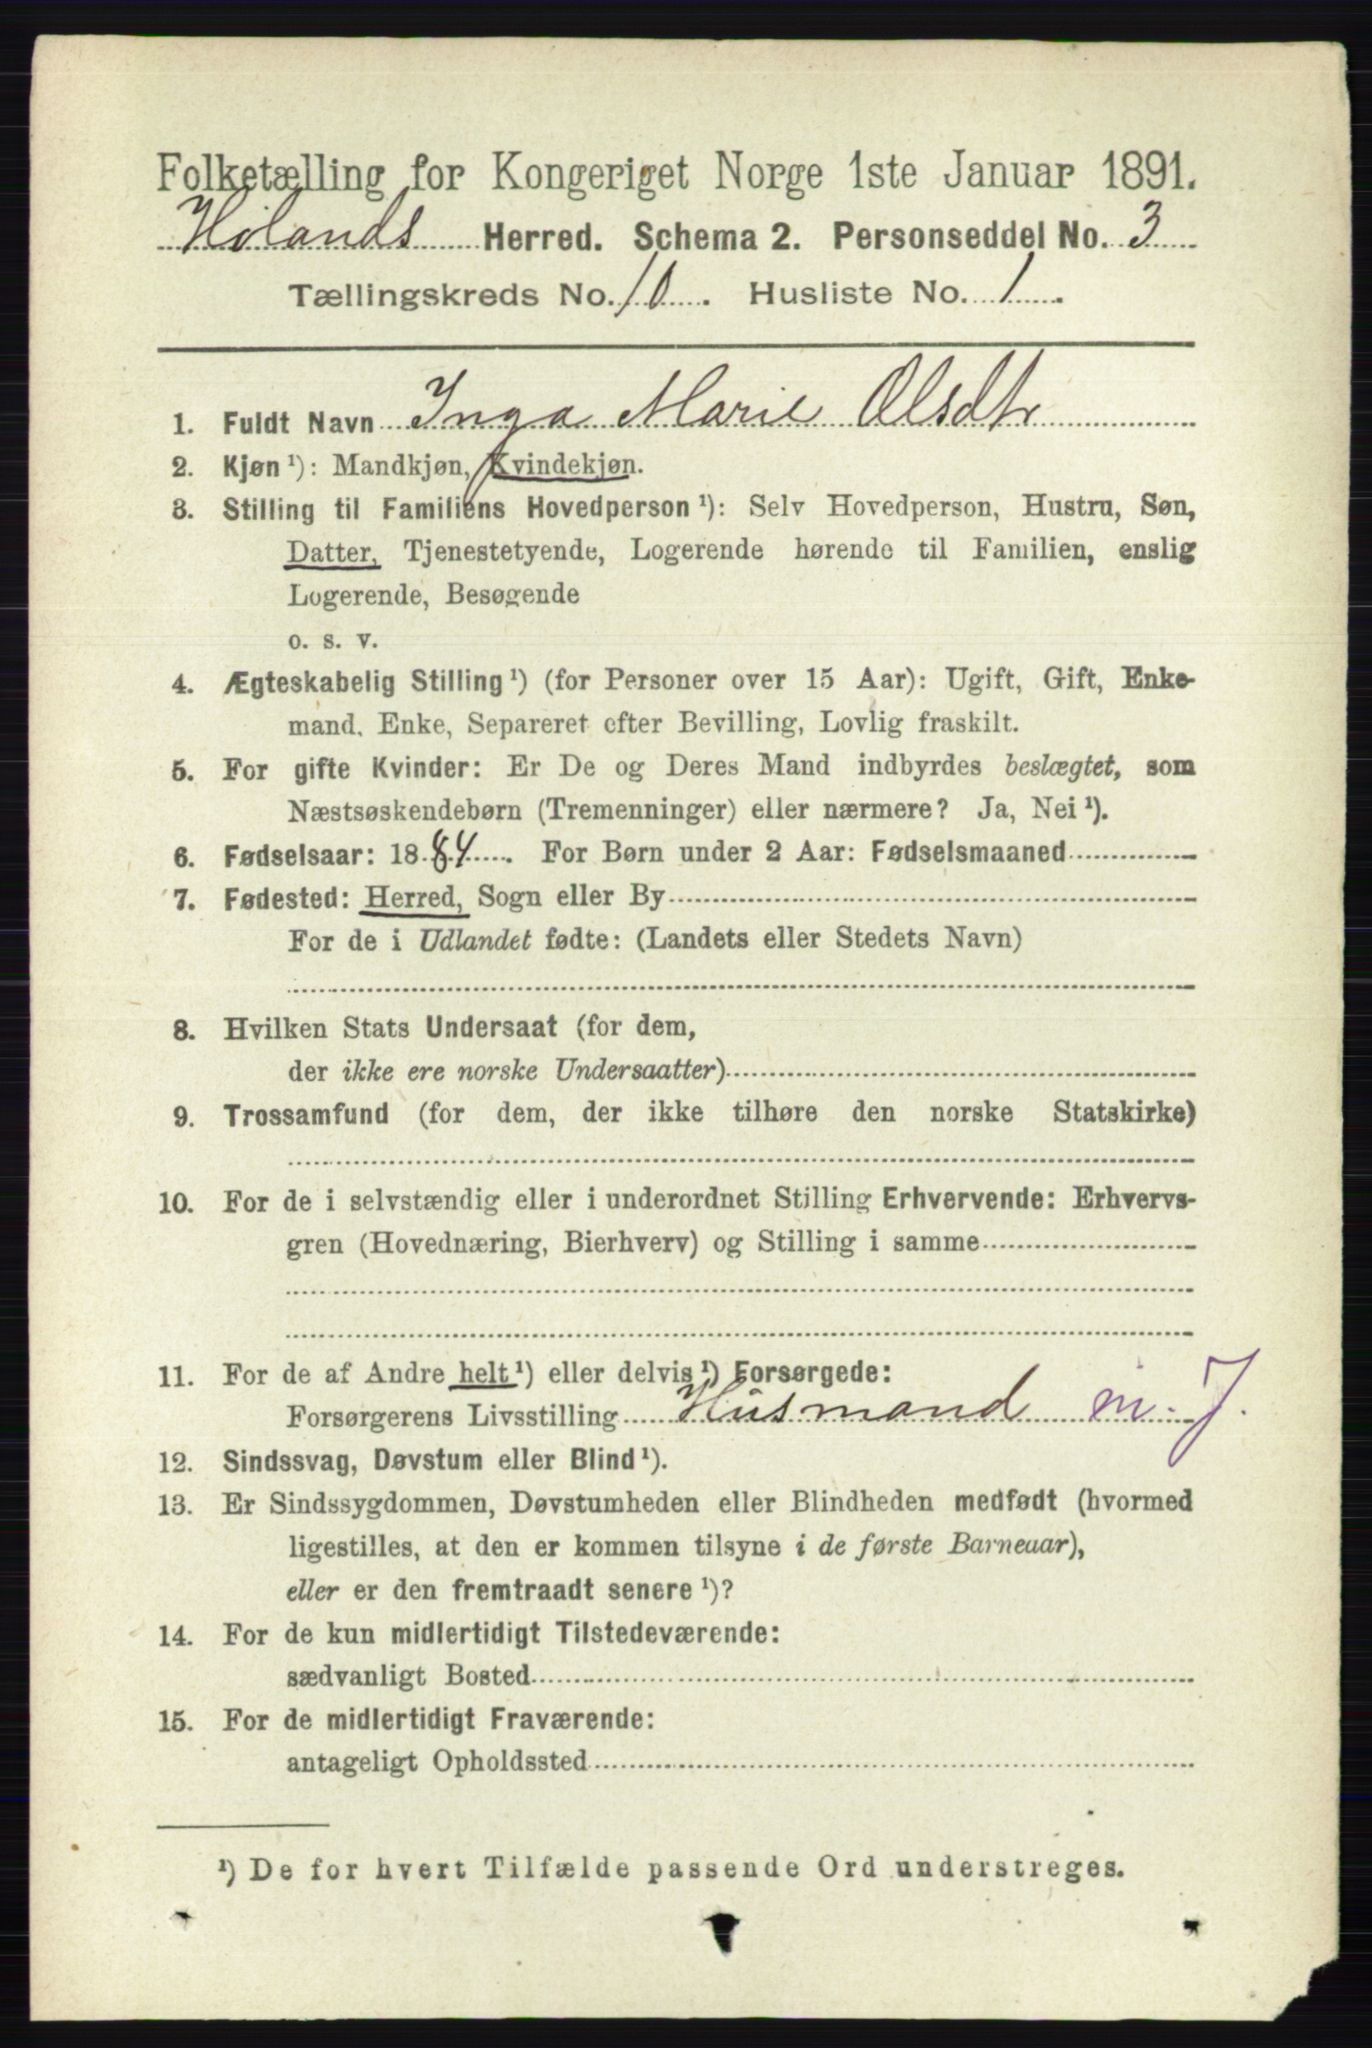 Folketælling for Kongeriget Norge 1ste Januar 1891.
Hølands Herred. Schema 2. Personseddel No. 3
Tællingskreds No. 10. Husliste No. 1.
1. Fuldt Navn Inga Marie Olsdtr
2. Kjøn ¹): Mandkjøn, Kvindekjøn.
3. Stilling til Familiens Hovedperson ¹): Selv Hovedperson, Hustru, Søn,
Datter, Tjenestetyende, Logerende hørende til Familien, enslig
Logerende, Besøgende
o. s. v.
4. Ægteskabelig Stilling ¹) (for Personer over 15 Aar): Ugift, Gift, Enke-
mand, Enke, Separeret efter Bevilling, Lovlig fraskilt.
5. For gifte Kvinder: Er De og Deres Mand indbyrdes beslægtet, som
Næstsøskendebørn (Tremenninger) eller nærmere? Ja, Nei ¹).
6. Fødselsaar: 1884. For Børn under 2 Aar: Fødselsmaaned
7. Fødested: Herred, Sogn eller By
For de i Udlandet fødte: (Landets eller Stedets Navn)
8. Hvilken Stats Undersaat (for dem,
der ikke ere norske Undersaatter)
9. Trossamfund (for dem, der ikke tilhøre den norske Statskirke)
10. For de i selvstændig eller i underordnet Stilling Erhvervende: Erhvervs-
gren (Hovednæring, Bierhverv) og Stilling i samme
11. For de af Andre helt ¹) eller delvis ¹) Forsørgede:
Forsørgerens Livsstilling Husmand m. J.
12. Sindssvag, Døvstum eller Blind ¹).
13. Er Sindssygdommen, Døvstumheden eller Blindheden medfødt (hvormed
ligestilles, at den er kommen tilsyne i de første Barneaar),
eller er den fremtraadt senere ¹)?
14. For de kun midlertidigt Tilstedeværende:
sædvanligt Bosted
15. For de midlertidigt Fraværende:
antageligt Opholdssted
¹) De for hvert Tilfælde passende Ord understreges.